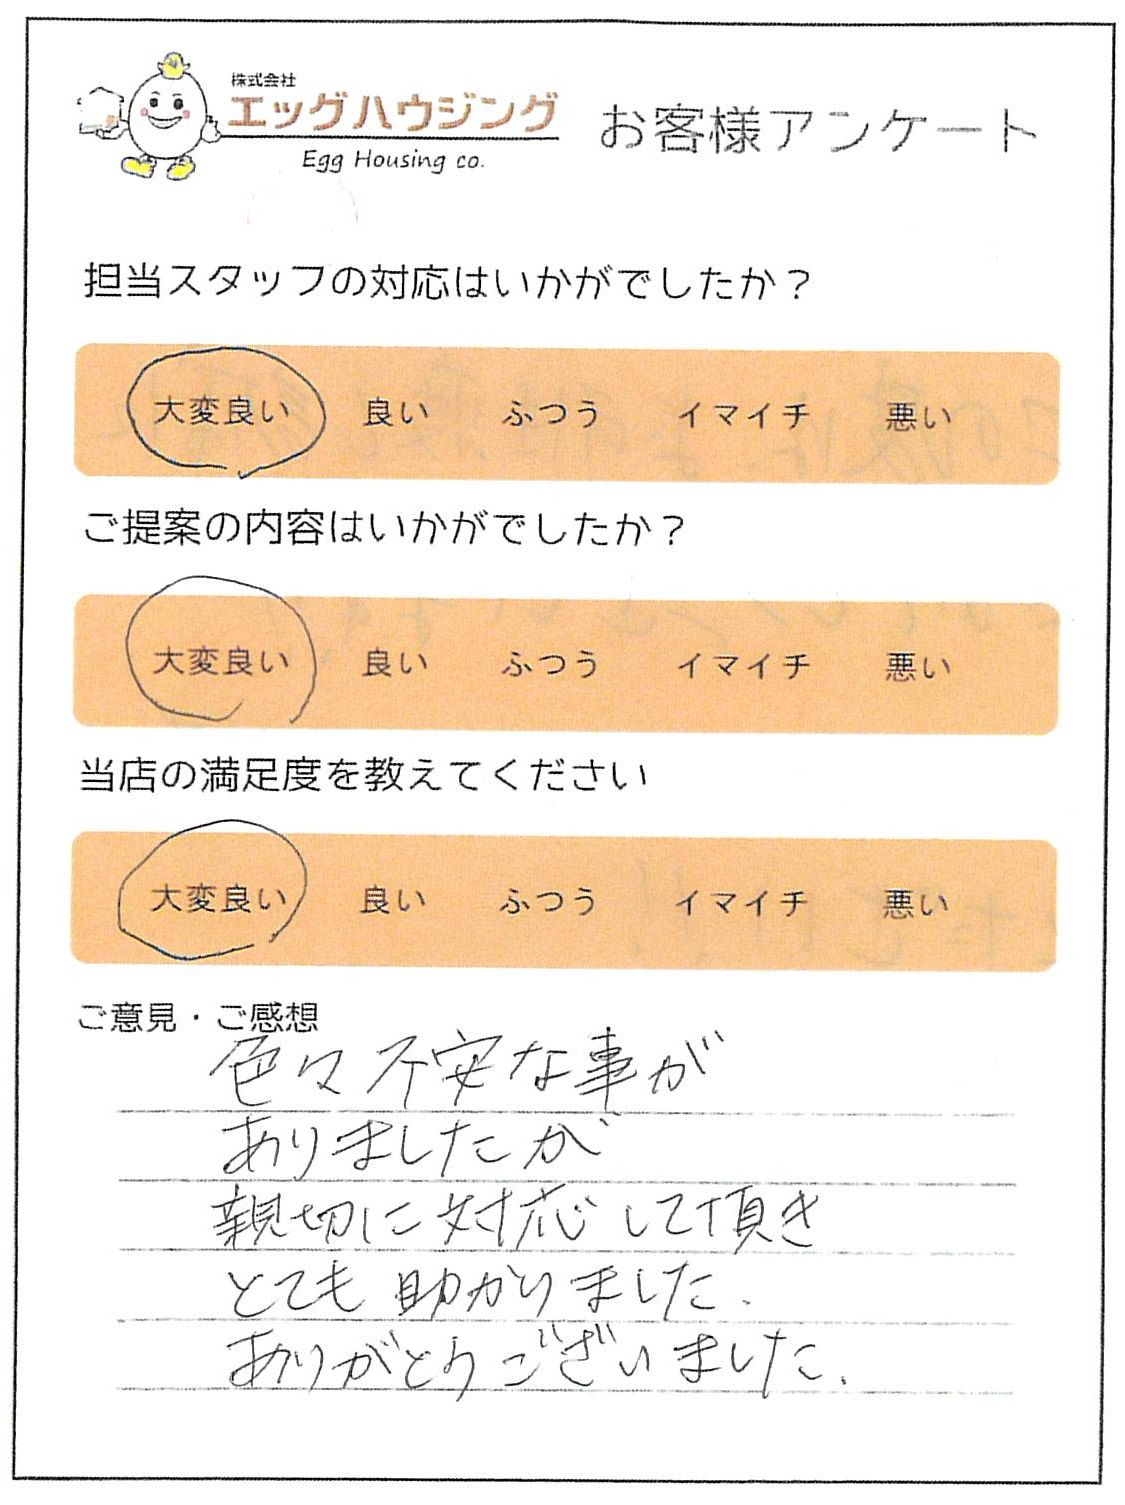 株式会社
エッグハウジング
Egg Housing co.
お客様アンケート
担当スタッフの対応はいかがでしたか？
大変良い 良い ふつう イマイチ 悪い
ご提案の内容はいかがでしたか？
大変良い 良い ふつう イマイチ 悪い
当店の満足度を教えてください
大変良い 良い ふつう イマイチ 悪い
ご意見・ご感想
色々不安な事が
ありましたが
親切に対応して頂き
とても助かりました.
ありがとうございました.